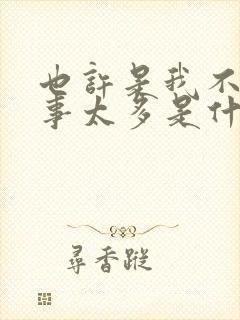 也許是我不
事太多是什
尋香蹤